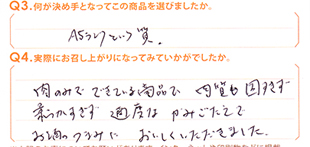 Q3.何が決め手となってこの商品を選びましたか。
A5ランクという質。
Q4.実際にお召し上がりになってみていかがでしたか。
肉のみでできている商品で 肉質も固すぎず
柔らかすぎず 適度な かみごたえで
お酒のつまみに おいしくいただきました。